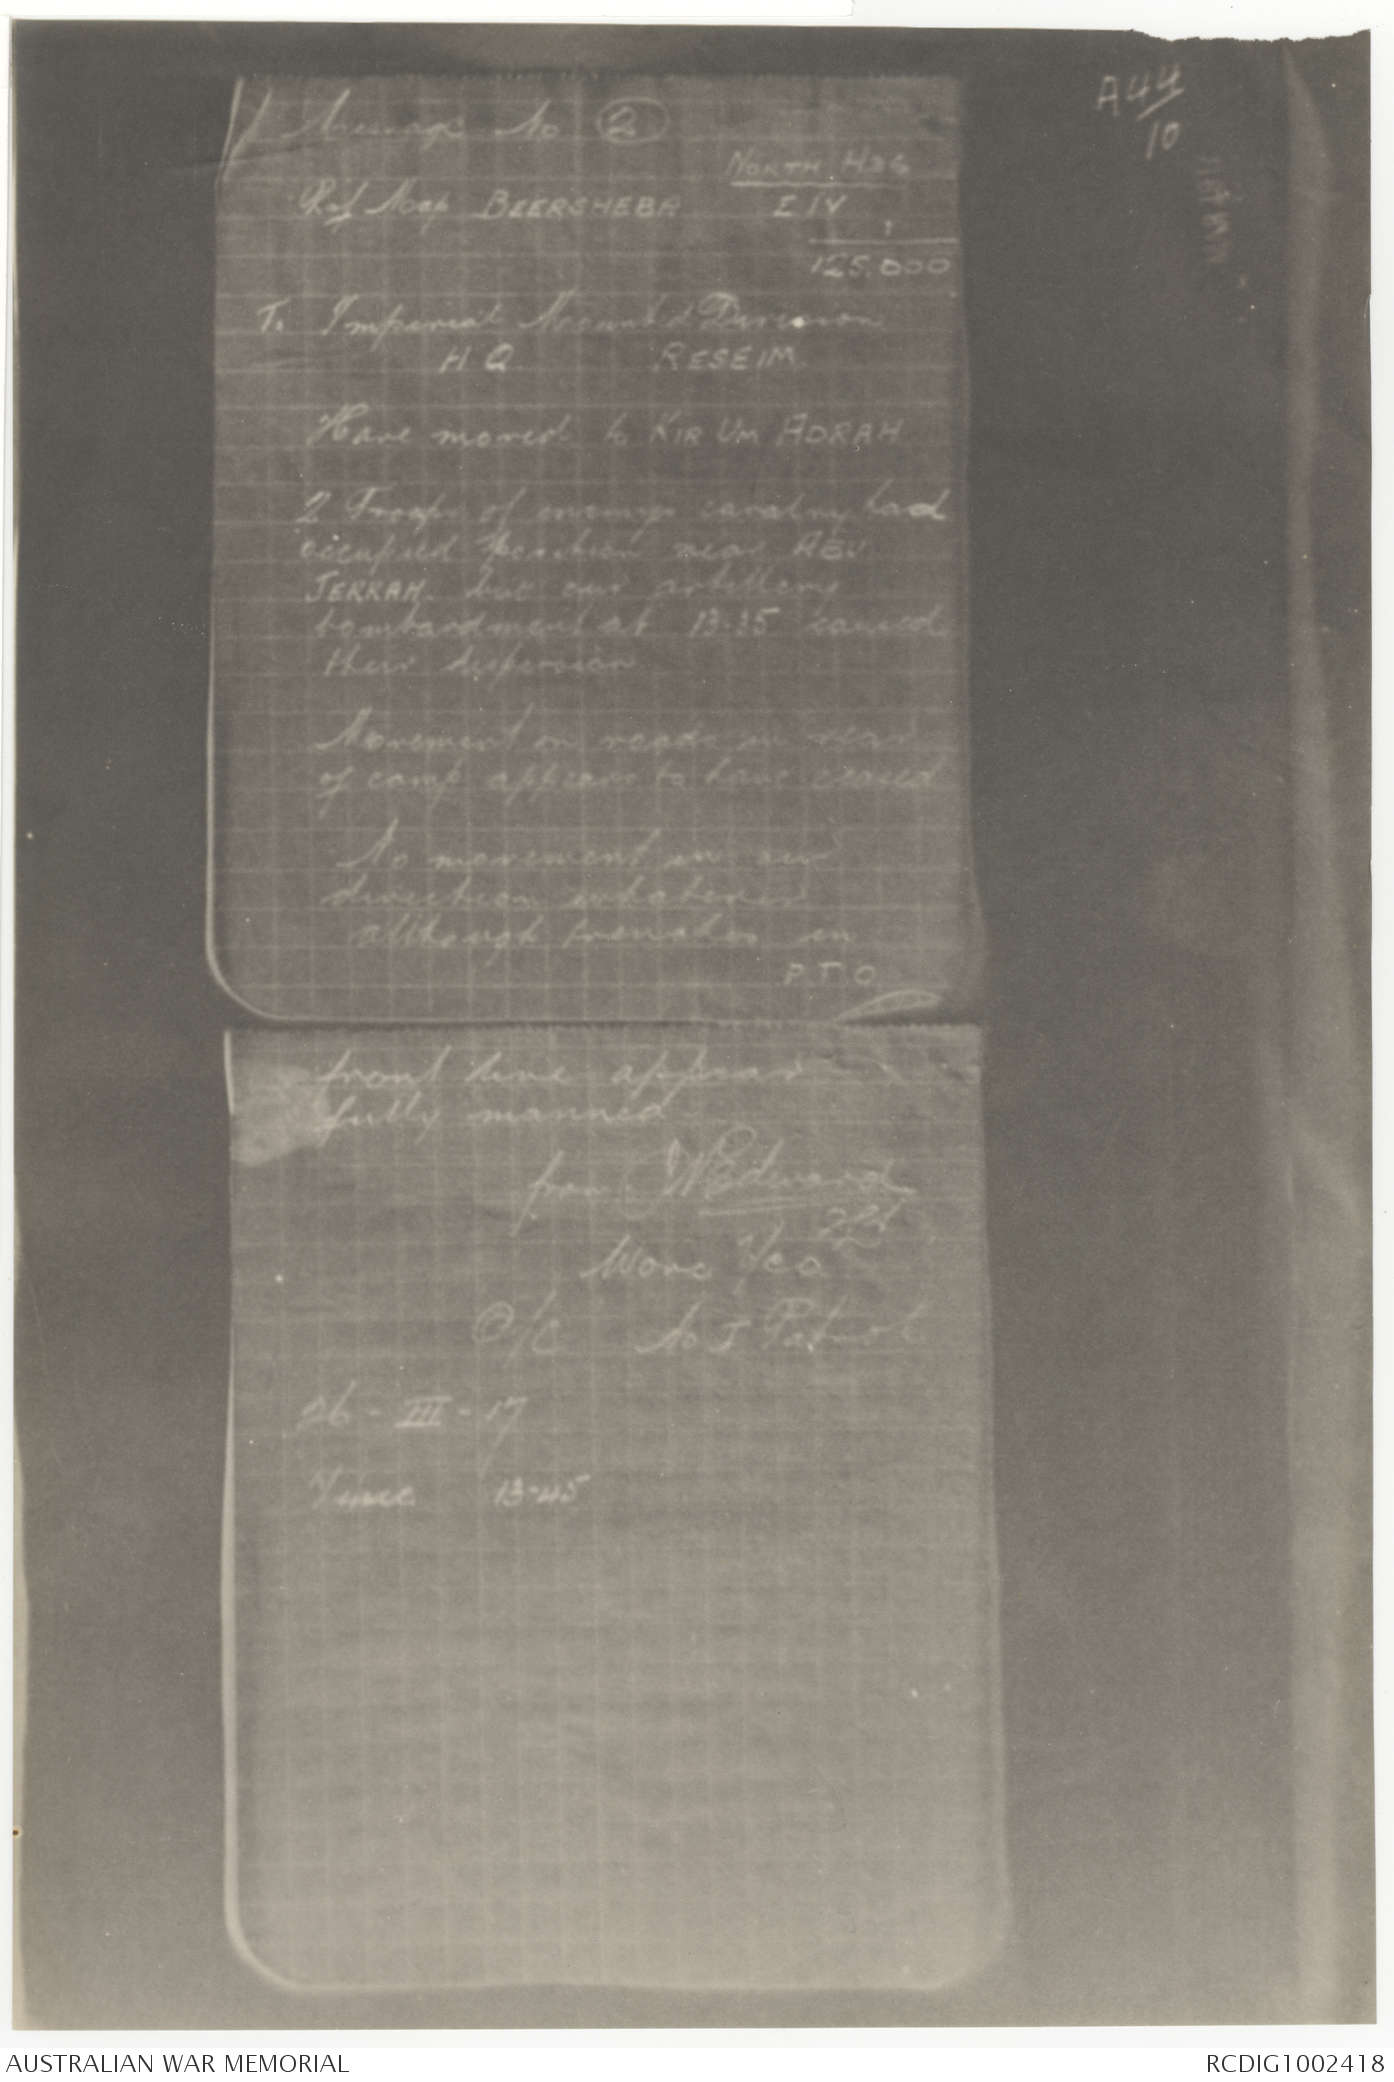 A 44/10
Message No 2
NORTH 436
Ref Map BEERSHEBA E IV
1
125.000
To Imperial Mounted Division
H Q RESEIM
Have moved to KIR UM ADRAH
2 Troops of enemys cavalry had
occupied position near ABU
JERRAH but our artillery
bombardment at 13.35 caused
their dispersion
Movement on roads in rear
of camp appears to have ceased
No movement in our
direction whatever
although trenches in
P.T.O
front line appear
fully manned
from J W Edwards
Worc Yeo
O/C No I Patrol
26 - III - 17
Time 13-45
AUSTRALIAN WAR MEMORIAL
RCDIG1002418